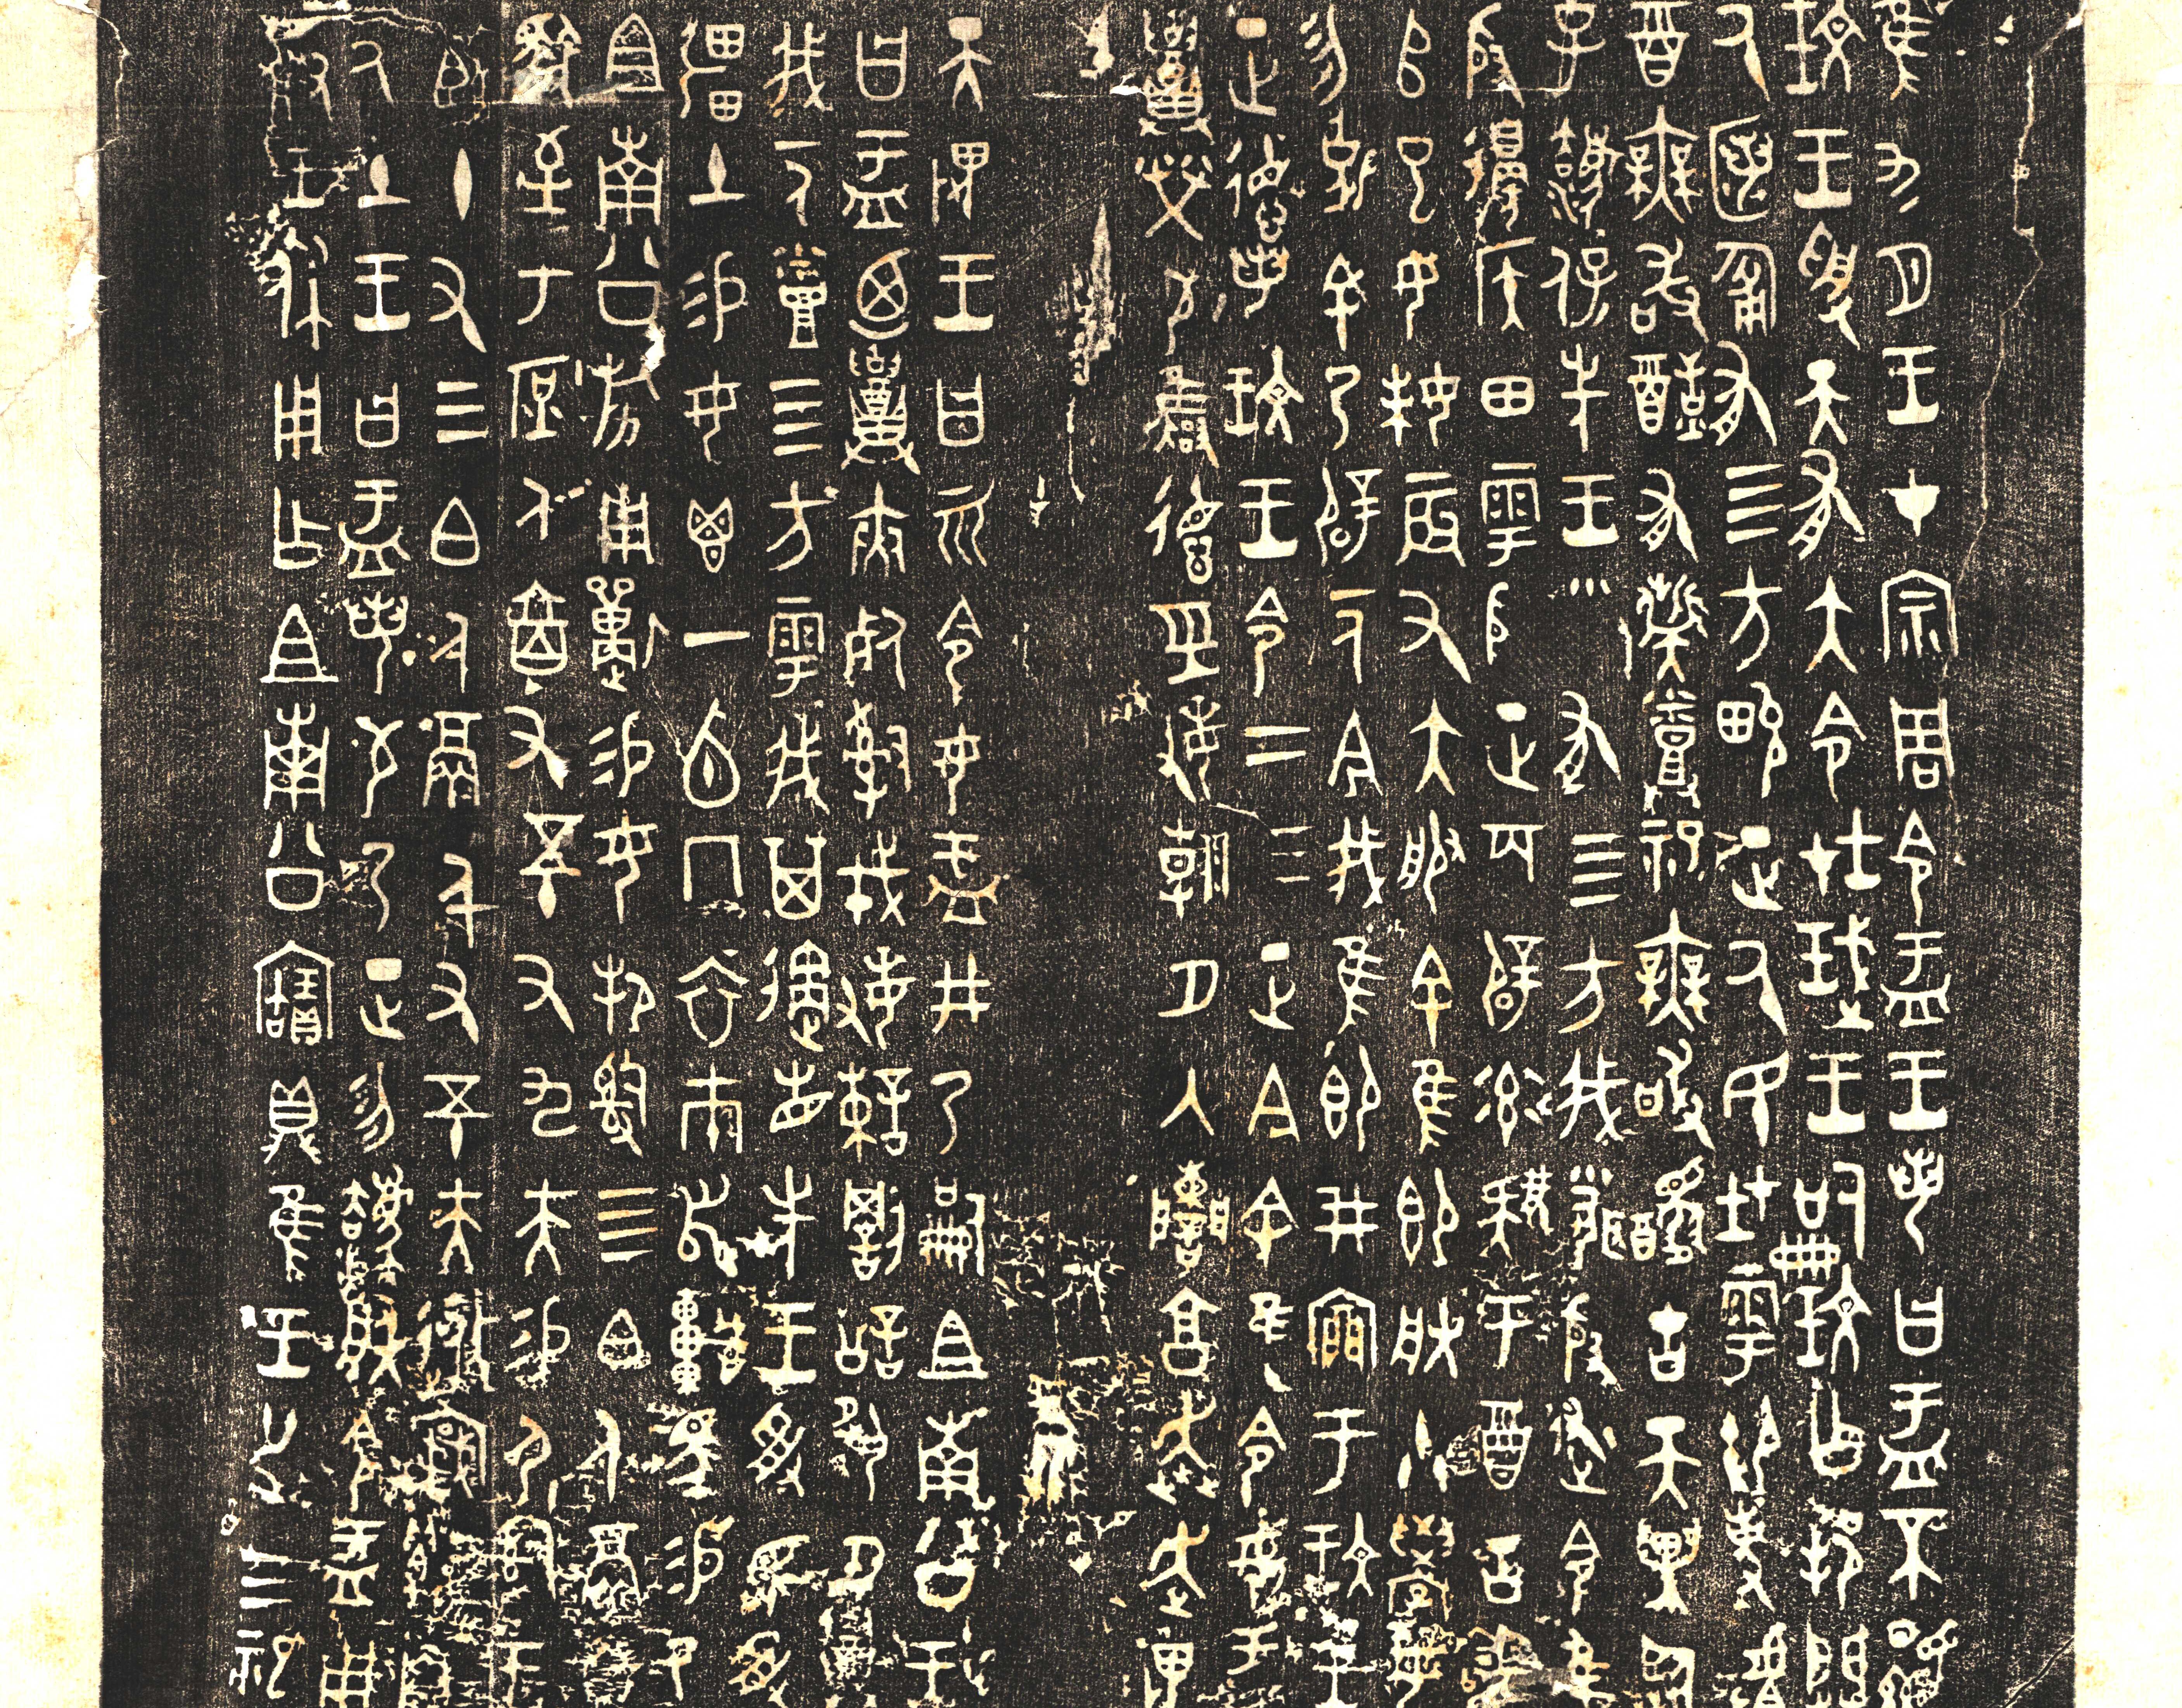 隹九月王才宗周令盂王若曰盂不顯
玟王受天有大令在珷王嗣玟乍邦闢
厥匿匍有四方畯正厥民在雩御事𠭯
酉無敢酖有髭烝祀無敢醻古天異臨
子灋保先王有四方我聞殷述令隹
殷邊侯田雩殷正百辟率肄于酉古喪
𠂤巳女妹辰又大服余隹即朕小學女
勿𠟭余乃辟一人今我隹即井㐭于玟王
正德若玟王令二三正今余隹令女盂
召榮敬雝德巠敏朝夕入讕享奔走畏
天畏王曰而令女盂井乃嗣且南公王
曰盂廼召夾死司戎敏諫罰訟夙夕召
我一人烝四方雩我其遹省先王受民受
疆土易女鬯一卣冂衣巿舄車馬易乃
且南公旂用狩易女邦司四白人鬲自
馭至于庶人六百又五十又九夫易尸司王
臣十又三白人鬲千又五十夫遷自
厥土王曰盂若敬乃正勿灋朕令盂用
對王休用乍且南公寶鼎隹王廿又三祀